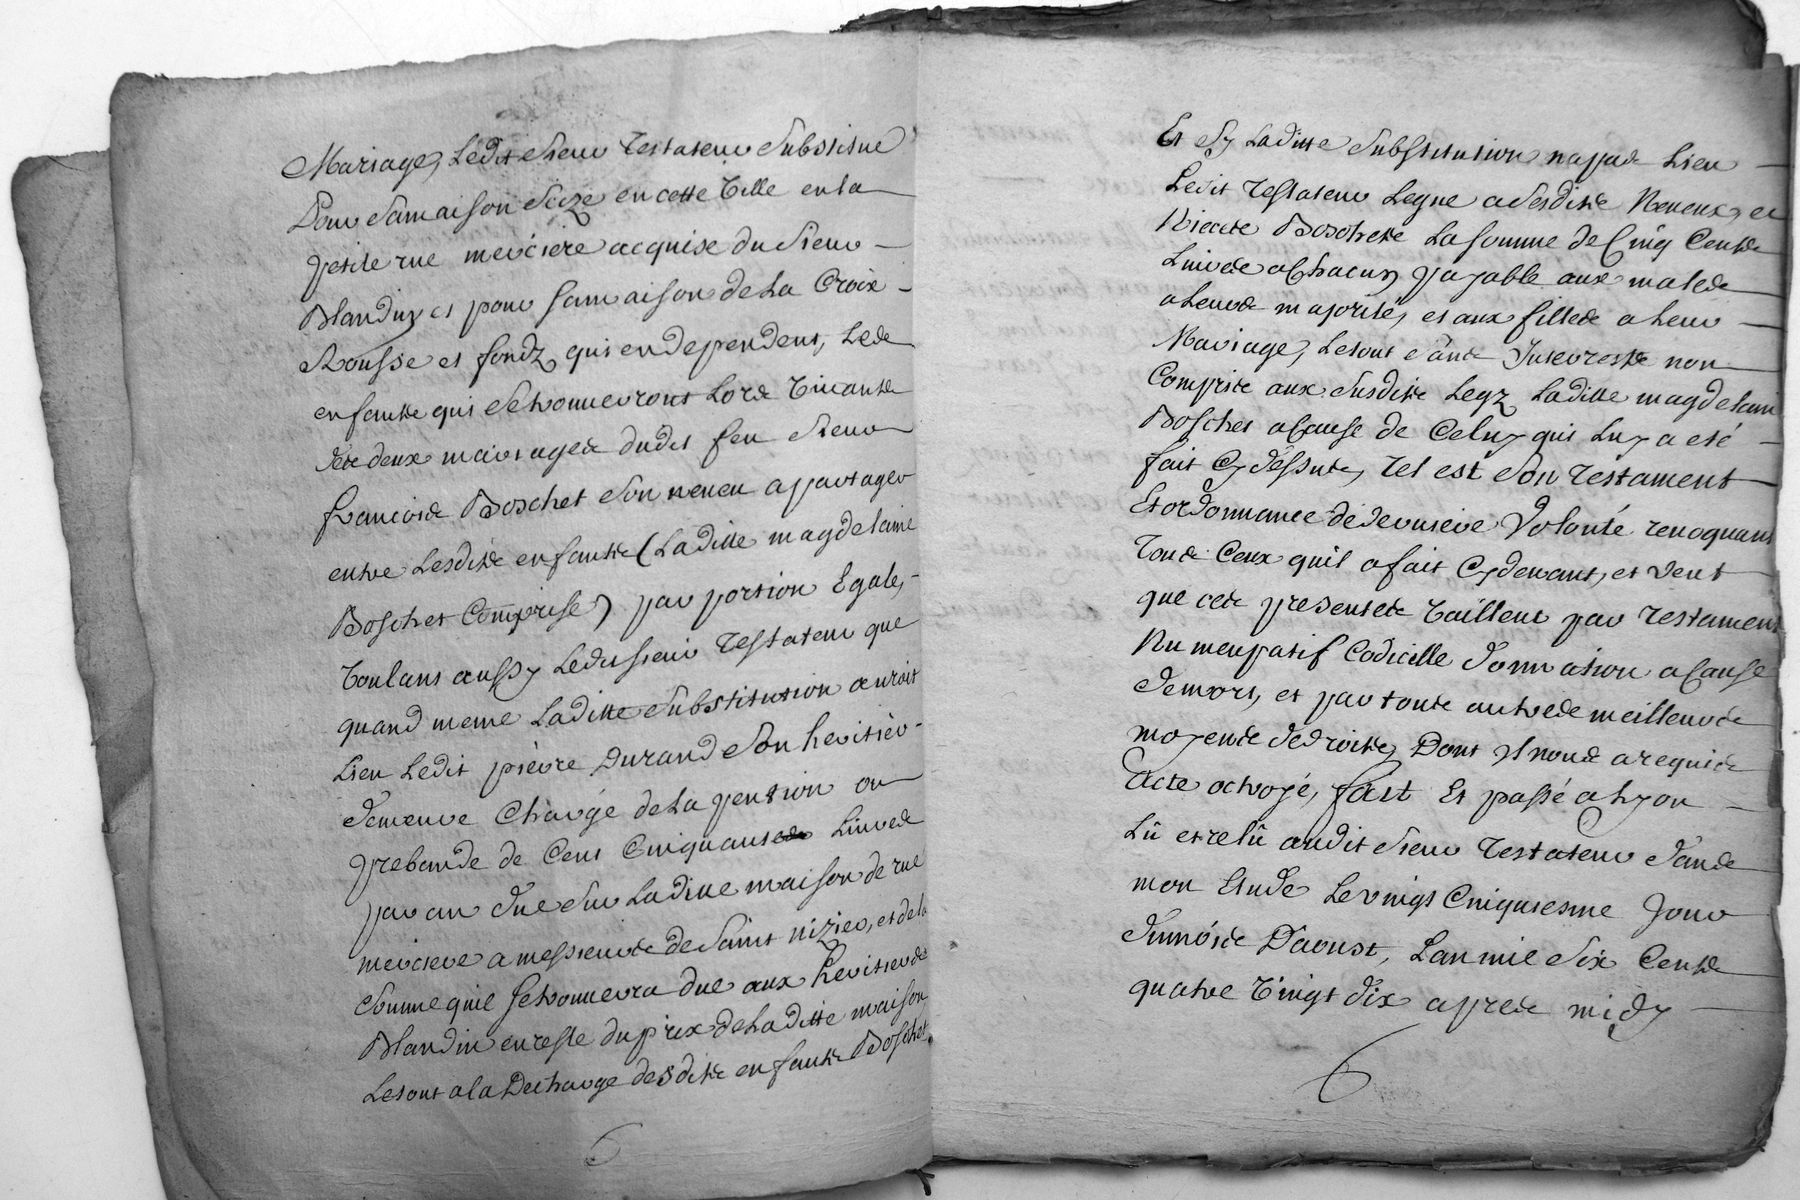 Mariage, Ledit Sieur Testateur Substitue
Pour Samaison Size en cette Ville en la
petite rue merciere acquise du Sieur
Blandin et pour Samaison de La Croix
Rousse et fondz qui en dependent, Les
enfants qui Setrouveront Lors Vivants
des deux mariages dudit feu Sieur
francois Boschet Son neveu a partager
entre Lesdits enfants (Laditte magdelaine
Boschet Comprise) par portion Egale,
Voulant aussy Ledit sieur Testateur que
quand meme Laditte Substitution auroit
Lieu Ledit pierre Durand Son heritier
demeure Chargé de La pension ou
prebande de Cent Cinquante Livres
par an due Sur Laditte maison de rue
merciere a messieurs de Saint nizier, et de la
Somme quil Setrouvera due aux heritiers de
Blandin en reste du prix de Laditte maison
Le tout a la Decharge desdits enfants Boschet.
Et Sy Laditte Substitution napas Lieu
Ledit Testateur Legue a Sesdits Neveux, et
Nieces Boschets La Somme de Cinq Cents
Livres a Chacun payable aux males
a leurs majorité, et aux filles a leur
Mariage, Le tout Sans Interests non
Comprise aux Susdits Legz Laditte magdelaine
Boschet a Cause de Celuy qui Luy a eté
fait Cy dessus, Tel est Son Testament
Et ordonnance de derniere Volonté revoquant
Tous Ceux quil a fait Cy devant, et veut
que ces presentes Vaillent par Testament
Nuncupatif Codicille donnation a Cause
de mort, et par toute autres meilleurs
moyens de droits, Dont Il nous a requis
acte octroyé, fait Et passé a Lyon
Lû et relû audit Sieur Testateur dans
mon Etude Le vingt Cinquiesme Jour
du mois D'aoust, Lan mil Six Cents
quatre Vingt dix apres midy